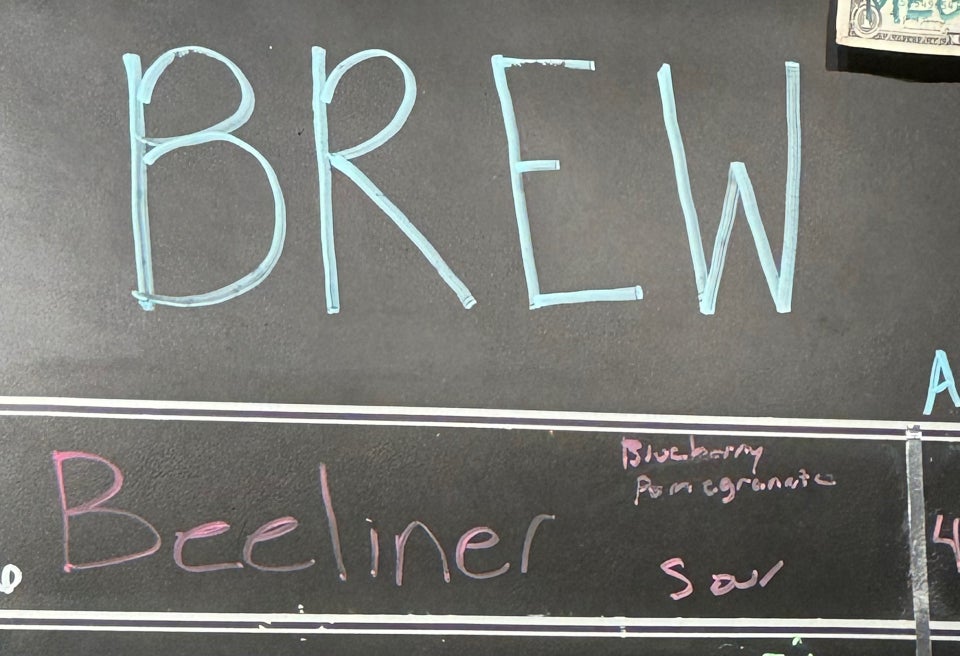 BREW
A
Beeliner
Blueberry
Pomegranate
Sour
4